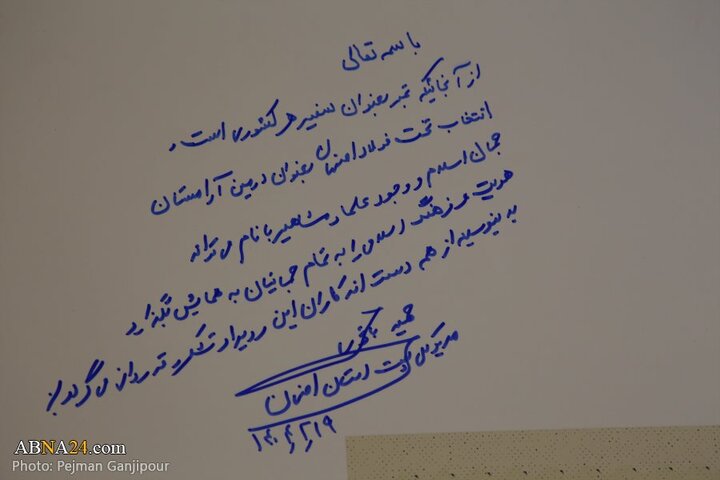 باسمه تعالی
از آنجائیکه تمبر بعنوان سفیر هر کشوری است و
انتخاب تخت فولاد اصفهان بعنوان دومین آرامستان
جهان اسلام و وجود علما و مشاهیر با نام می تواند
هویت و فرهنگ اسلامی را به تمام جهانیان به نمایش بگذارد
بدینوسیله از همه دست اندکاران این رویداد تشکر و قدردانی می گردد
حمید باقری
مدیرکل پست استان اصفهان
ABNA24.com
Photo: Pejman Ganjipour